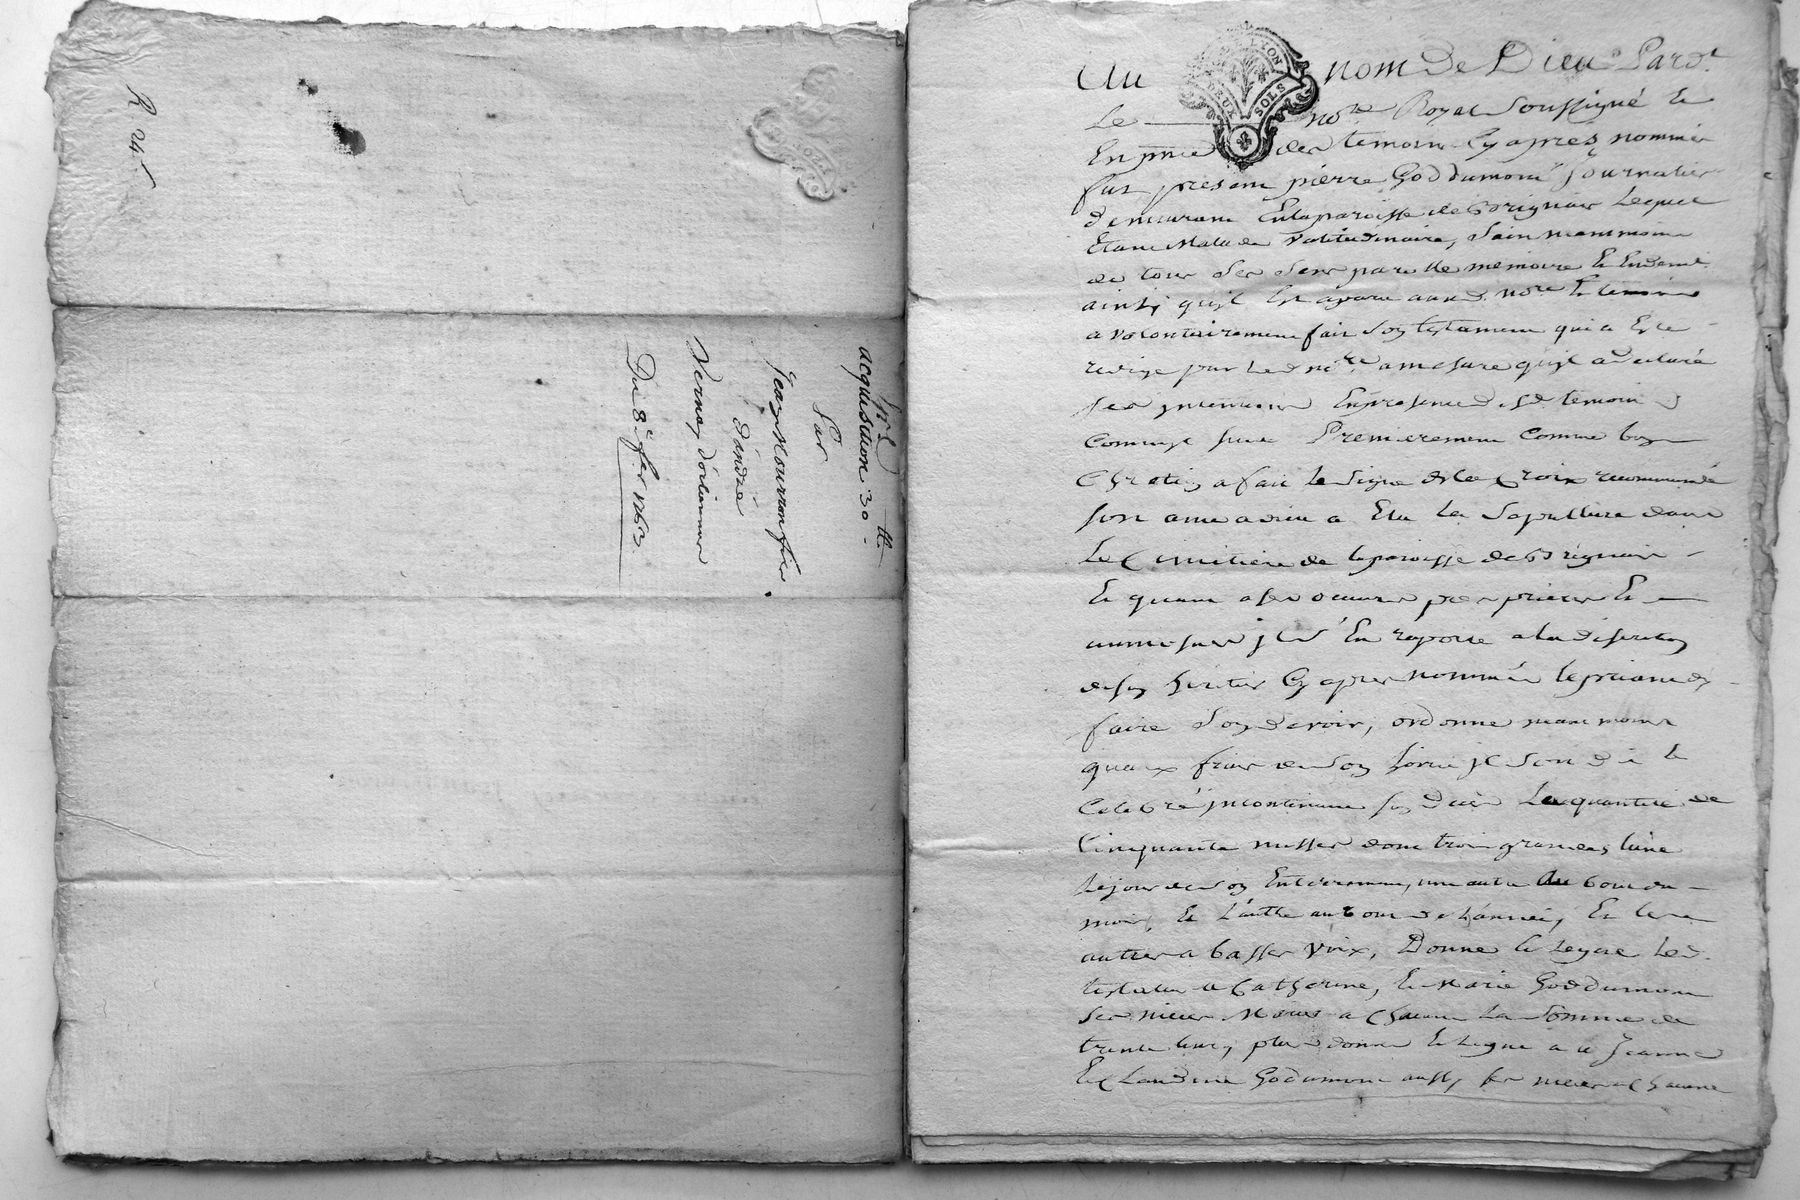 R 24
acquisition 30 tt
Par
Jean
d'andré
Vernay
Du 8e fer 1763
DE LYON
DEUX SOLS
Au nom de Dieu Pardt
Le nore Royal Soussigné et
En pnce des temoins Cy apres nommés
fut present pierre Goddumont journalier
demeurant En la paroisse de Brignais Lequel
Etant Malade Valitudinaire, Sain neantmoins
de tous Ses Sens parolle memoire Et Entendt
ainsy quyl Est aparu aud. nore Et temoins
a volontairement fait Son testament qui a Este
redigé par Led nore a mesure quyl a declaré
ses yntentions En presence desd temoins
Comme suit Premierement Comme bon
Chretien a fait le Signe de la Croix recommandé
son ame a dieu a Elu La Sepulture dans
Le Cimitiere de la paroisse de Brignais
Et quant a ses oeuvres pies prieres Et
aumosnes jl s'En raporte a la discretion
de son heritier Cy apres nommé le priant dy
faire Son devoir, ordonne neant moins
quaux frais de Son hoirie jl Soit dit et
Celebré jncontinent son deces La quantité de
Cinquante messes dont trois grandes, lune
Le jour de Son Enterrement, une autre Au bout du
mois, Et L'autre au bout de L'année, Et les
autres a basses Voix, Donne Et Legue Led.
testateur a Catherine, Et Marie Goddumont
Ses nieces a Chacune La Somme de
trente livres, plus donne Et Legue a Jeanne
Et Claudine Godumont aussy ses nieces a Chacune